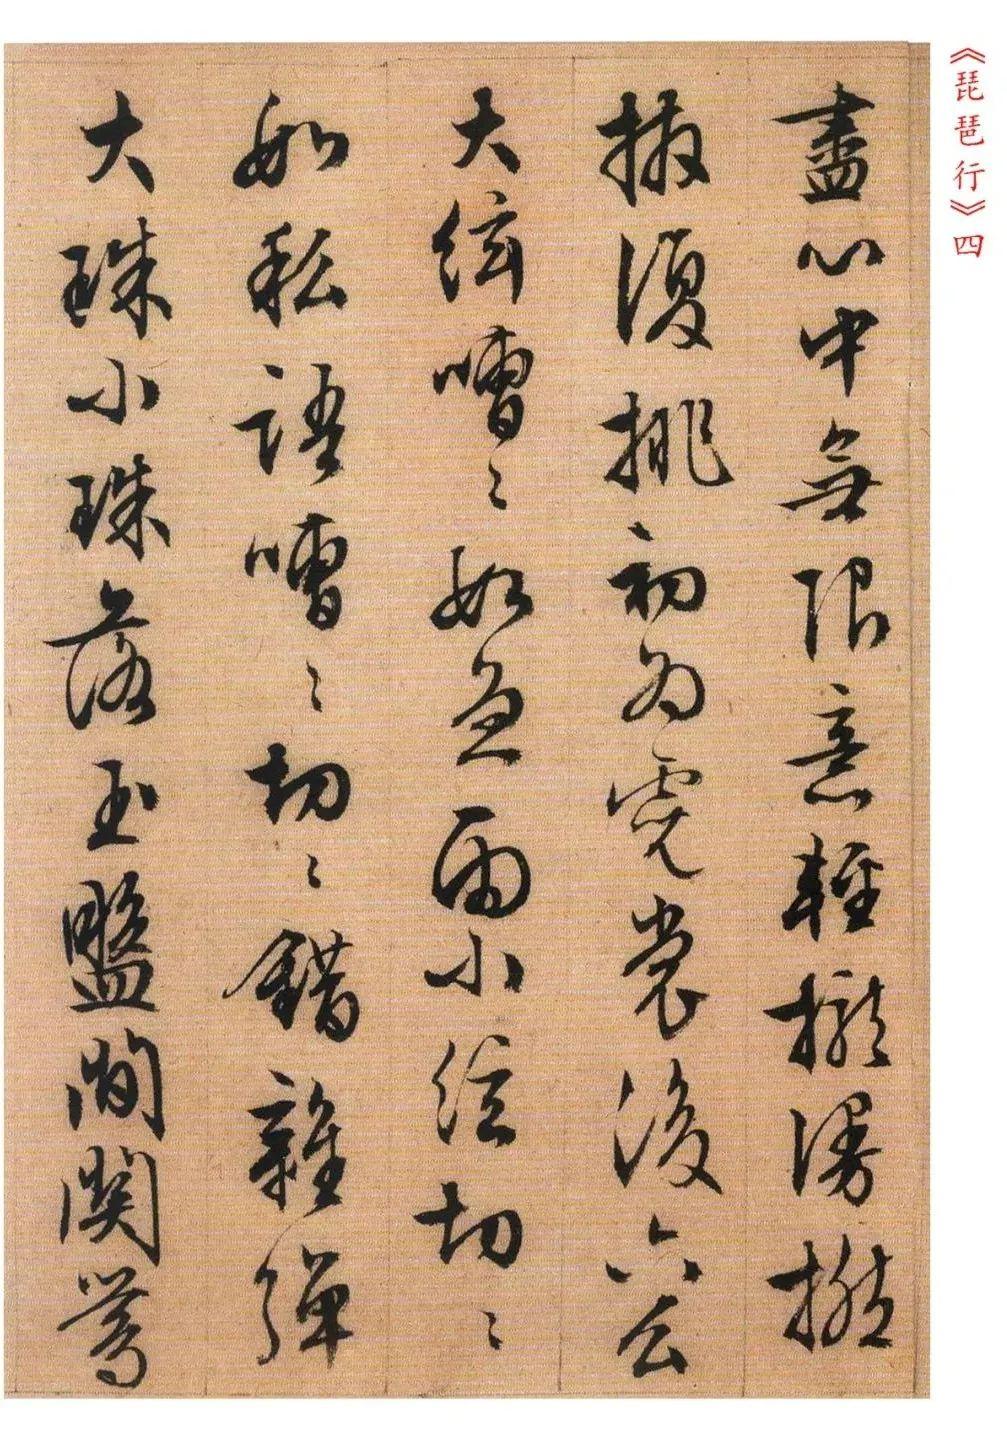 《琵琶行》四
盡心中無限意輕攏漫撚
抹復挑初為霓裳後六么
大絃嘈〻如急雨小絃切〻
如私語嘈〻切〻錯雜彈
大珠小珠落玉盤間関鶯